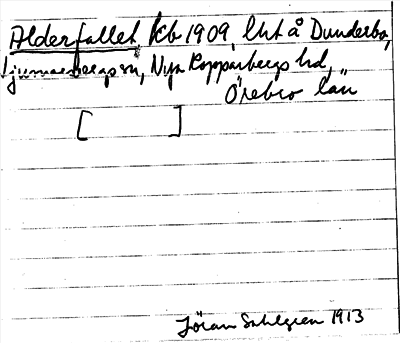 Alderfallet kb 1909, lht å Dunderbo,
Ljusnarsbergs sn, Nya Kopparbergs hd,
Örebro län
[ ]
Jöran Sahlgren 1913